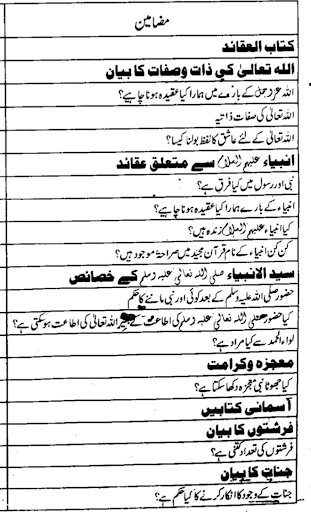 مضامین
کتاب العقائد
اللہ تعالیٰ کی ذات وصفات کا بیان
اللہ عزوجل کے بارے میں ہمارا کیا عقیدہ ہونا چاہیے؟
اللہ تعالیٰ کی صفات ذاتیہ
اللہ تعالیٰ کے لئے عاشق کا لفظ بولنا کیسا؟
انبیاء علیہم السلام سے متعلق عقائد
نبی اور رسول میں کیا فرق ہے؟
انبیاء کے بارے ہمارا کیا عقیدہ ہونا چاہیے؟
کیا انبیاء علیہم السلام زندہ ہیں؟
کن کن انبیاء کے نام قرآن مجید میں صراحۃً موجود ہیں؟
سید الانبیاء صلی اللہ تعالیٰ علیہ وسلم کے خصائص
حضور صلی اللہ علیہ وسلم کے بعد کوئی اور نبی ماننے کا حکم
کیا حضور صلی اللہ تعالیٰ علیہ وسلم کی اطاعت کے بغیر اللہ تعالیٰ کی اطاعت ہو سکتی ہے؟
لواء الحمد سے کیا مراد ہے؟
معجزہ وکرامت
کیا جھوٹا نبی معجزہ دکھا سکتا ہے؟
آسمانی کتابیں
فرشتوں کا بیان
فرشتوں کی تعداد کتنی ہے؟
جنات کا بیان
جنات کے وجود کا انکار کرنے کا کیا حکم ہے؟